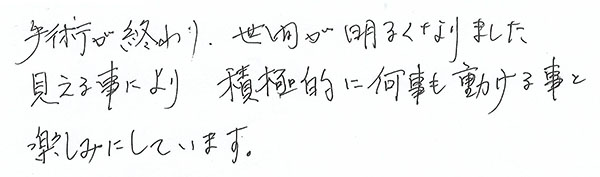 手術が終わり、世間が明るくなりました
見える事により 積極的に何事も動ける事と
楽しみにしています。